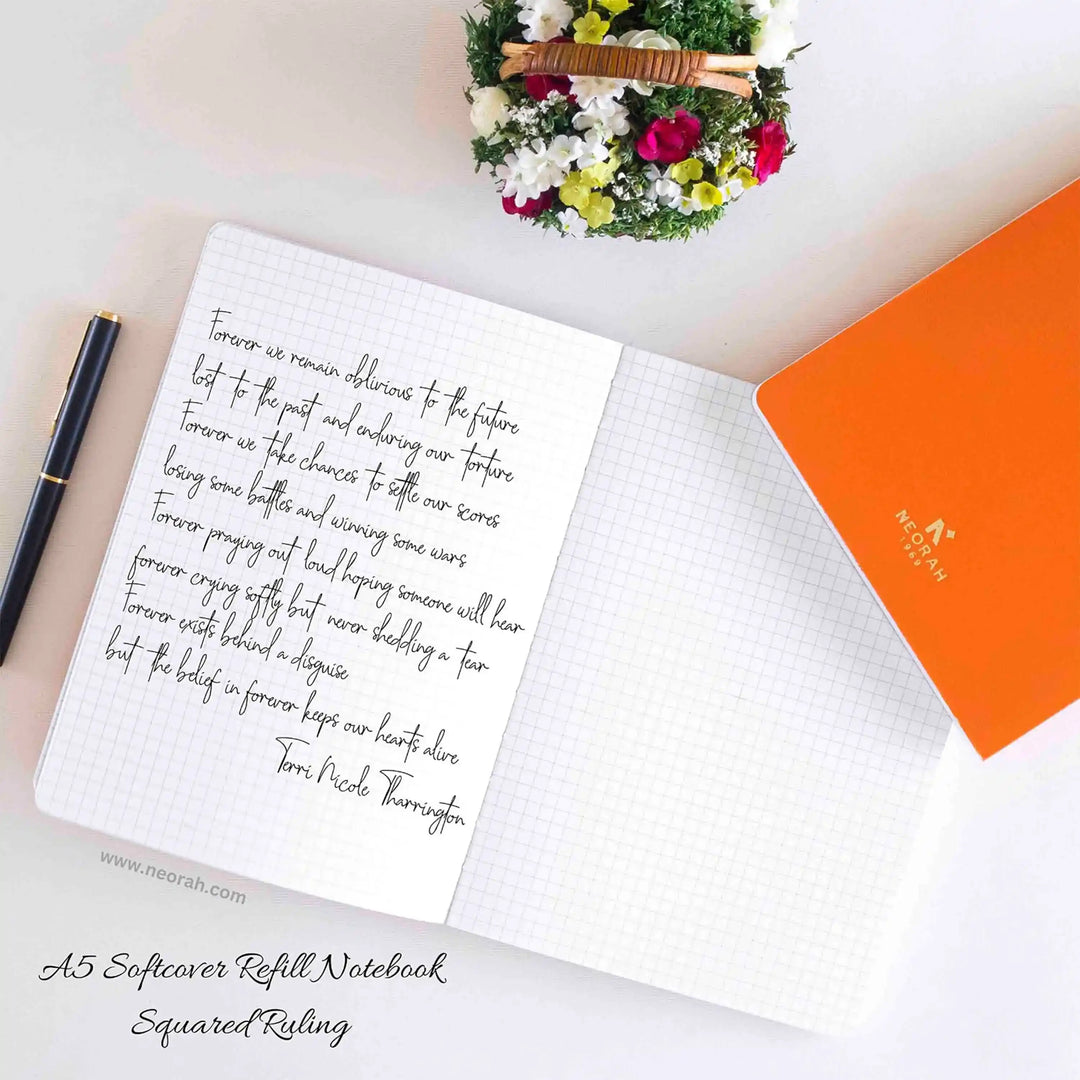 Forever we remain oblivious to the future
lost to the past and enduring our torture
Forever we take chances to settle our scores
losing some battles and winning some wars
Forever praying out loud hoping someone will hear
forever crying softly but never shedding a tear
Forever exists behind a disguise
but the belief in forever keeps our hearts alive
Terri Nicole Tharrington
NEORAH
1969
www.neorah.com
A5 Softcover Refill Notebook
Squared Ruling